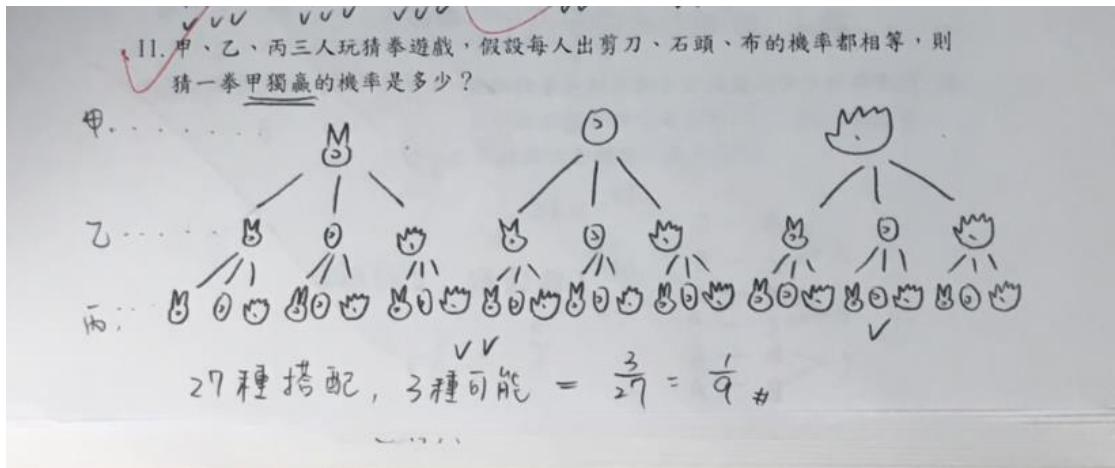 11. 甲、乙、丙三人玩猜拳遊戲，假設每人出剪刀、石頭、布的機率都相等，則
猜一拳甲獨贏的機率是多少？
甲.........
乙......
丙...
27種搭配，3種可能 = 3/27 = 1/9 #